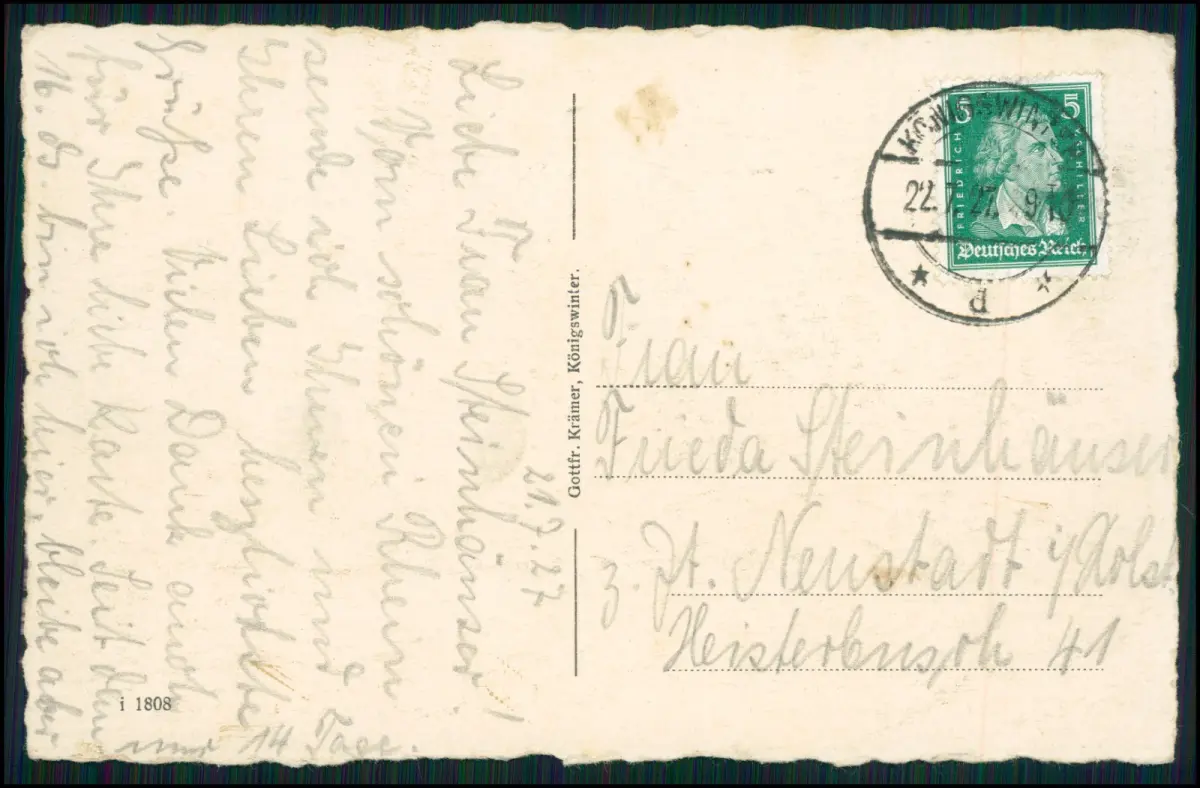 K. 21.7.27
Liebe Frau Steinhäuser!
Vom schönen Rhein
sende ich Ihnen und
Ihren Lieben herzlichste
Grüße. Vielen Dank auch
für Ihre liebe Karte. Seit dem
16. ds. bin ich hier, bleibe aber
nur 14 Tage.
i 1808
Gottfr. Krämer, Königswinter.
5 5
FRIEDRICH SCHILLER
Deutsches Reich
KÖNIGSWINTER
22.7.27. 9-10
* d *
Frau
Frieda Steinhäuser
z. Zt. Neustadt i/Holst
Heisterbusch 41